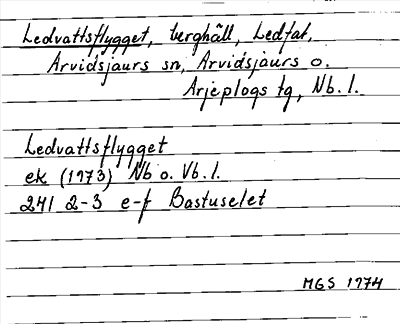 Ledvattsflygget, berghäll, Ledfat,
Arvidsjaurs sn, Arvidsjaurs o.
Arjeplogs tg, Nb. l.
Ledvattsflygget
ek (1973) Nb o. Vb. l.
241 2-3 e-f Bastuselet
MGS 1974